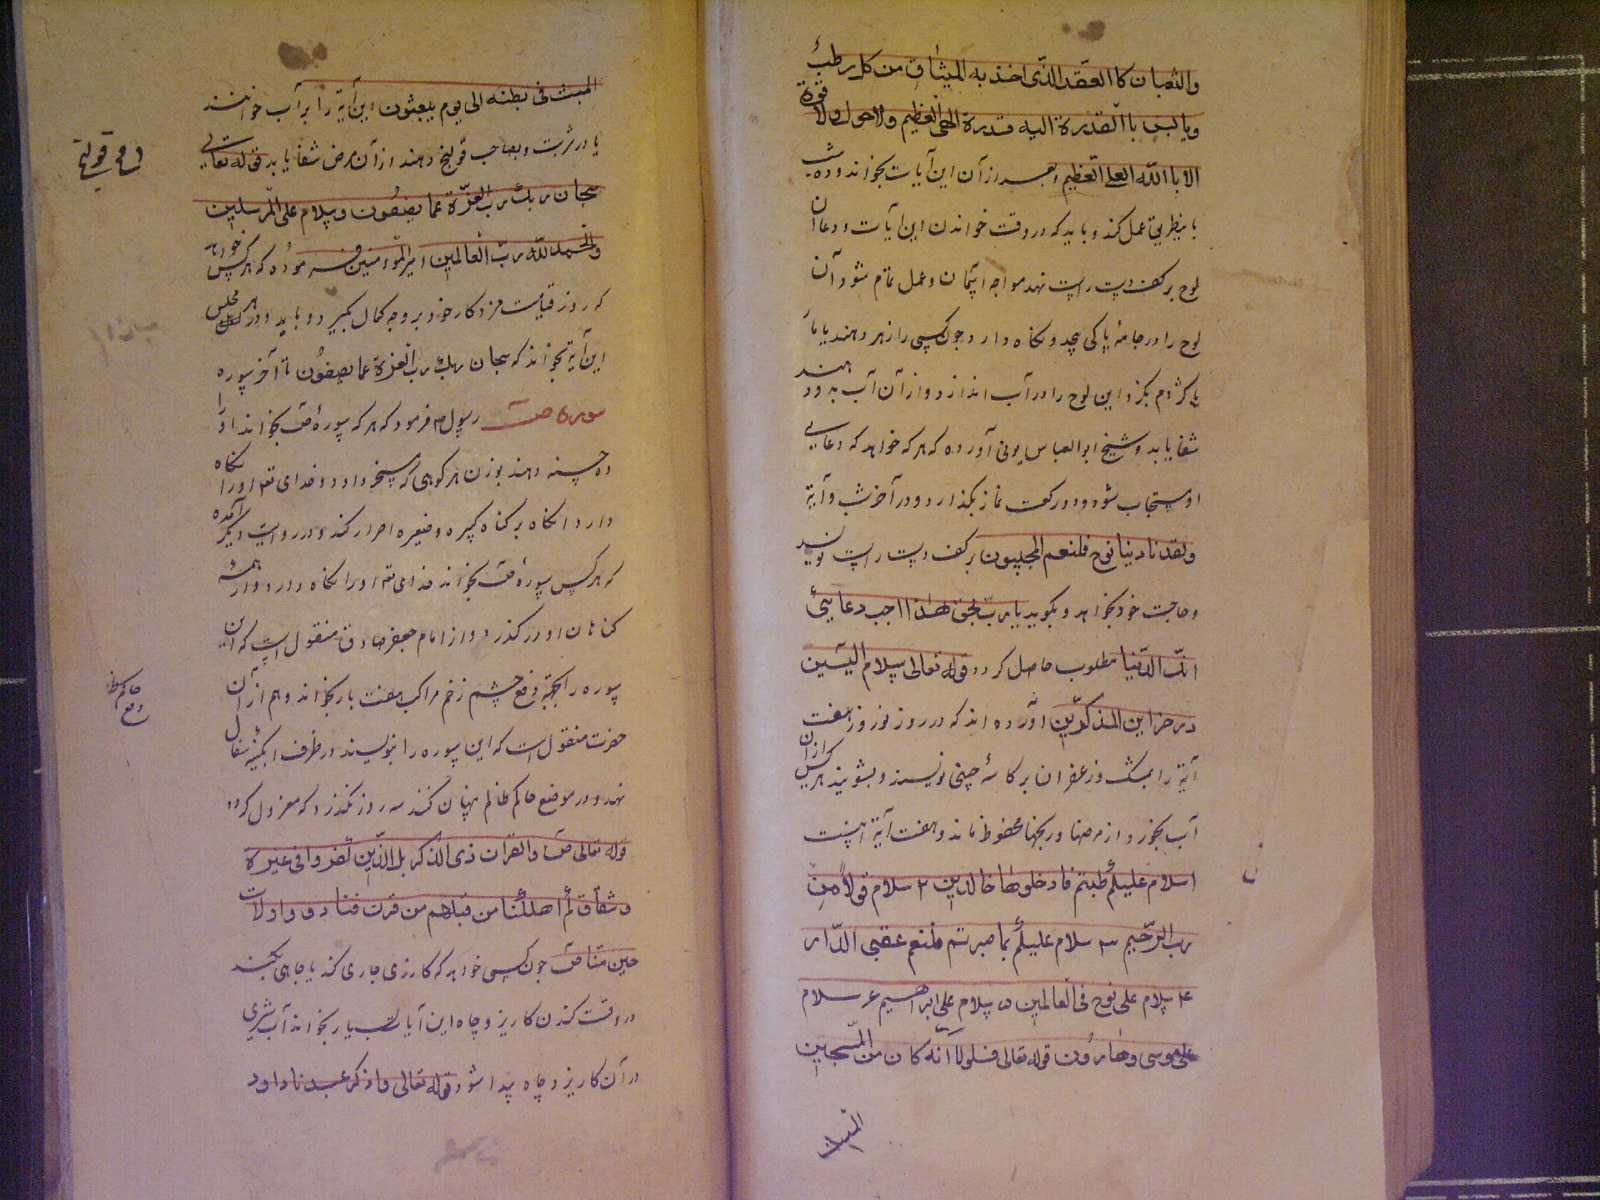 والثعبان كا العقد الذی اخذ به المیثاق من كل رطب
ویابس با القدرة الیه قدرة الهی العظیم ولا حول ولا قوة
الا باالله العلی العظیم از آن این آیات بخواند و ده شب
باینطریق عمل کند و باید که در وقت خواندن این آیات و دعا آن
لوح بر کف دست راست نهد مواجه و عمل تمام شود آن
لوح را در جامهٔ پاکی پیچد و نکاه دارد و چون کسی را زهر دهند یا مار
یا کژدم بکزد این لوح را در آب اندازد و از آن آب بدو دهند
شفا یابد و شیخ ابو العباس بونی آورده که هر که خواهد که دعایی
او مستجاب شود دو رکعت نماز بکذارد و در آخر شب و آیة
ولقد نادینا نوح فلنعم المجیبون بر کف دست راست نویسد
و حاجت خود بخواهد و بکوید یا رب بحق هذا اجب دعایی
مطلوب حاصل کردد قوله تعالی سلام
آورده اند که در روز نوروز هفت
آیة را بمشک و زعفران بر کاسهٔ چینی نویسند و بشویند هر کس از آن
آب بخورد از مرضها و رنجها محفوظ ماند و هفت آیة اینست
سلام علیکم طبتم فادخلوها خالدین ۲ سلام قولا من
رب الرحیم ۳ سلام علیکم بما صبرتم فنعم عقبی الدار
۴ سلام علی نوح فی العالمین ۵ سلام علی ابراهیم ۶ سلام
علی موسی وهارون قوله تعالی فلولا انه کان من المسبحین
للبث
للبث فی بطنه الی یوم یبعثون این آیة را بر آب خوانند
یا در شربت و بصاحب قولنج دهند از آن مرض شفا یابد قوله تعالی
دفع قولنج
سبحان ربك رب العزة عما یصفون وسلام علی المرسلین
والحمد لله رب العالمین امیر المومنین فرموده که هر کس خواهد
که روز قیامت مزد کار خود بر وجه کمال بکیرد باید در هر مجلس
این آیة بخواند که سبحان ربك رب العزة عما یصفون تا آخر سوره
سوره ص رسول م فرمود که هر که سورهٔ ص بخواند او را
ده حسنه دهند بوزن هر کوهی که مسخر داود و خدای تع او را نکاه
دارد از آنکاه بر کناه کبیره و صغیره اصرار کند و در روایت دیکر آمده
که هر کس سورهٔ ص بخواند خدای تع او را نکاه دارد و از همه
کناهان او در کذرد و از امام جعفر صادق منقول است که این
سوره را بجهة دفع چشم زخم مراکب هفت بار بخواند و هم از آن
حضرت منقول است که این سوره را بنویسند در ظرف آبکینه سفال
نهد و در موضع حاکم ظالم پنهان کنند سه روز نکذرد که معزول کردد
دفع حاکم
قوله تعالی ص والقران ذی الذکر بل الذین کفروا فی عزة
وشقاق کم اهلکنا من قبلهم من قرن فنادوا ولات
حین مناص چون کسی خواهد که کاریزی جاری کند یا چاهی بکند
در وقت کندن کاریز و چاه این آیات بسیار بخواند آب شیرین
در آن کاریز و چاه پیدا شود قوله تعالی واذکر عبدنا داود